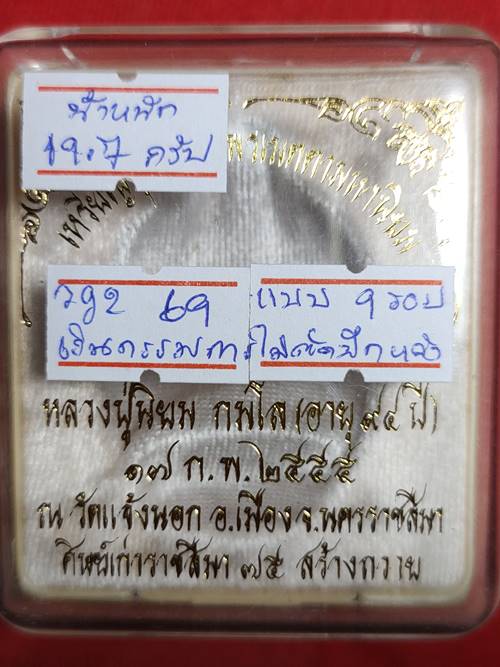 น้ำหนัก
19.7 กรัม
เหรียญ พรเมตตามหานิยม
วฐ2 69
เงินกรรมการ
แบบ 9 รอบ
ไม่ตัดปีก หลัง
หลวงปู่นิยม กมโล (อายุ ๙๔ ปี)
๑๗ ก.พ. ๒๕๕๕
ณ วัดแจ้งนอก อ.เมือง จ.นครราชสีมา
ศิษย์เก่าราชสีมา ๗๕ สร้างถวาย